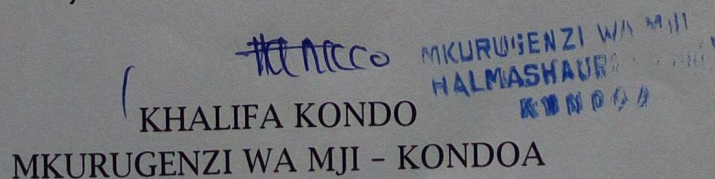 MKURUGENZI WA MJI
HALMASHAURI
KONDOA
KHALIFA KONDO
MKURUGENZI WA MJI – KONDOA